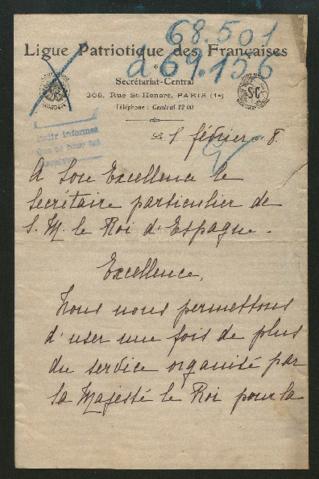 68.501
a 69.156
Ligue Patriotique des Françaises
Secrétariat-Central
368, Rue St-Honoré, PARIS (1e)
Téléphone : Central 22 00
1 février 8.
Pedir informes
A Son Excellence le
Secrétaire particulier de
S. M. le Roi d'Espagne.
Excellence,
Nous nous permettons
d'user une fois de plus
du service organisé par
Sa Majesté le Roi pour la